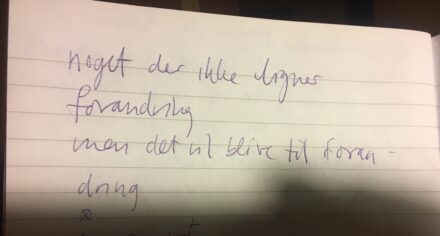 noget der ikke ligner
forandring
men det vil blive til foran-
dring